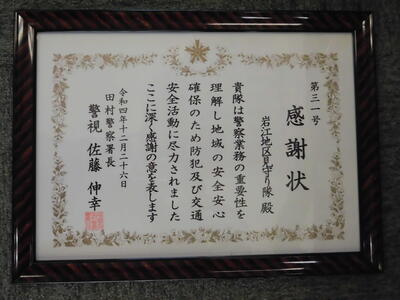 第三一号
感謝状
岩江地区見守り隊 殿
貴隊は警察業務の重要性を
理解し地域の安全安心
確保のため防犯及び交通
安全活動に尽力されました
ここに深く感謝の意を表します
令和四年十二月二十六日
田村警察署長
警視 佐藤 伸幸